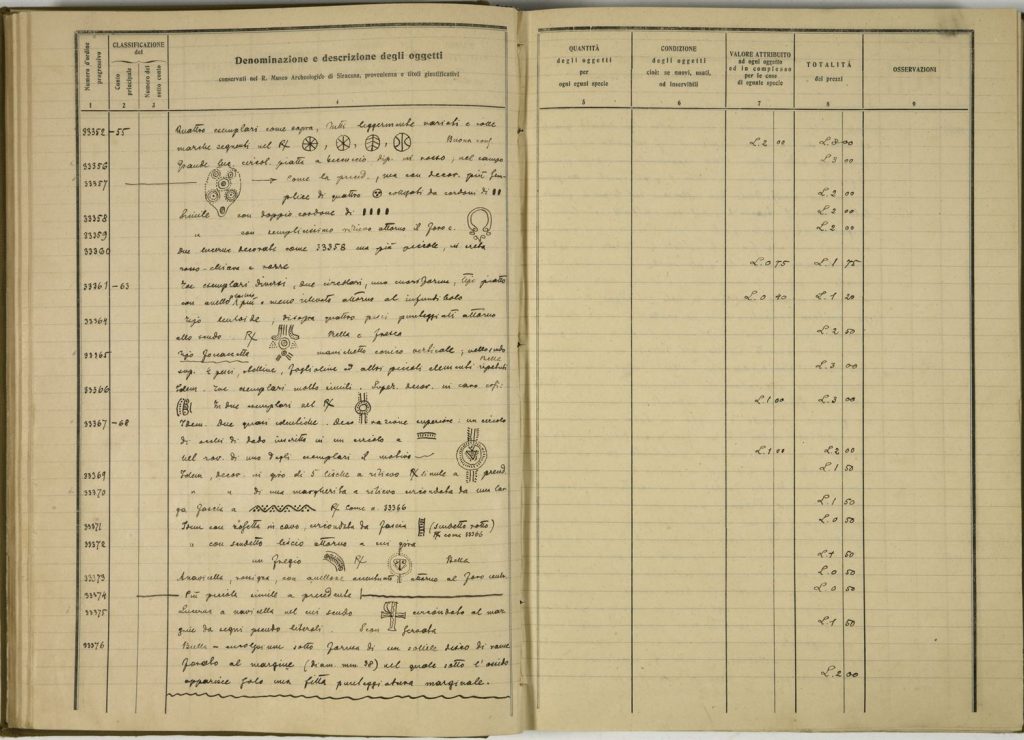 Numero d'ordine progressivo
CLASSIFICAZIONE del
Conto principale
Numero del sotto conto
Denominazione e descrizione degli oggetti
conservati nel R. Museo Archeologico di Siracusa, provenienza e titoli giustificativi
QUANTITÀ degli oggetti per ogni egual specie
CONDIZIONE degli oggetti cioè: se nuovi, usati, od inservibili
VALORE ATTRIBUITO ad ogni oggetto od in complesso per le cose di eguale specie
TOTALITÀ dei prezzi
OSSERVAZIONI
1 2 3 4 5 6 7 8 9
33352 - 55 Quattro esemplari come sopra, tutti leggermente variati e colle
marche seguenti nel Buona L. 2 00
33356 Grande nel campo L. 3 00
33357 come la preced., ma con decor. più sem-
plice di quattro collegati da cordoni di L. 2 00
33358 Simile con doppio cordone di L. 2 00
33359 " con semplicissimo rilievo attorno il foro c. L. 2 00
33360 Due lucerne decorate come 33358 ma più piccole, in creta
rosso-chiara L. 0 75 L. 1 75
33361 - 63 Tre esemplari diversi, due circolari, uno tipo piatto
con anello più o meno rilevato attorno al infundibolo L. 0 40 L. 1 20
33364 Tipo lenticolare, disopra quattro pesci punteggiati attorno
allo scudo Bella e fresca L. 2 50
33365 manichetto conico verticale; nello scudo
altri piccoli elementi ripetuti Bella L. 3 00
33366 Idem. Tre esemplari molto simili. Super. decor. in cavo
In due esemplari nel L. 1 00 L. 3 00
33367 - 68 Idem. Due quasi identiche. Decorazione superiore: un circolo
di occhi di dado inscritto in un circolo a
nel rov. di uno degli esemplari il motivo L. 1 00 L. 2 00
33369 Idem, decor. in giro di 5 a rilievo simile a preced. L. 1 50
33370 " " di una margherita a rilievo circondata da una lar-
ga fascia a come a 33366 L. 1 50
33371 in cavo, circondata da fascia (scudetto rotto) come 33366 L. 0 50
33372 " con scudetto liscio attorno a cui gira
un fregio Bella L. 1 50
33373 con anellone attorno al foro centr. L. 0 50
33374 Più piccola simile a precedente L. 0 50
33375 Lucerna a navicella nel cui scudo circondato al mar-
gine da segni pseudo literali. L. 1 50
33376 Bulla - sotto forma di un sottile disco di rame
forato al margine (diam. mm. 38) nel quale sotto l'ossido
apparisce solo una fitta punteggiatura marginale. L. 2 00